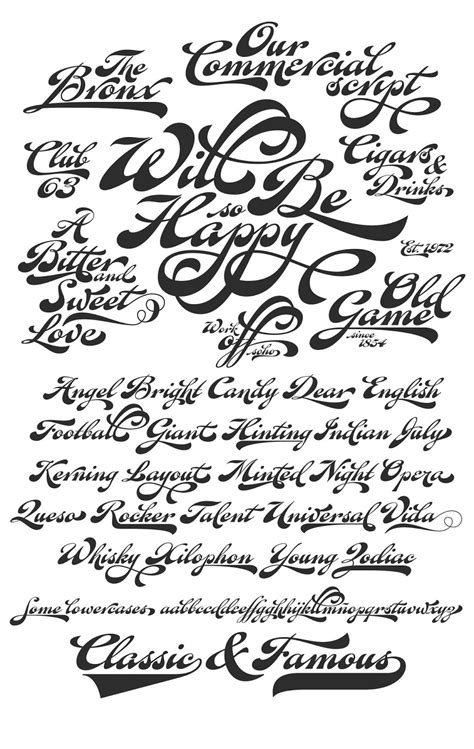 The
Bronx
Our
Commercial
script
Club
63
Will
Be
so
Happy
Cigars
&
Drinks
Est. 1972
A
Bitter
and
Sweet
Love
Work
off
soho
Old
Game
since
1854
Angel Bright Candy Dear English
Football Giant Hinting Indian July
Kerning Layout Minted Night Opera
Queso Rocker Talent Universal Vida
Whisky Xilophon Young Zodiac
Some lowercases
Classic & Famous